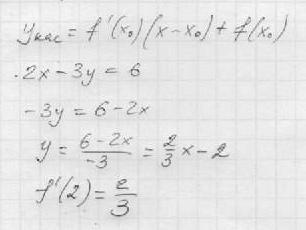 y кас = f'(x₀)(x-x₀) + f(x₀)
2x - 3y = 6
-3y = 6 - 2x
y = (6-2x)/(-3) = 2/3 x - 2
f'(2) = 2/3